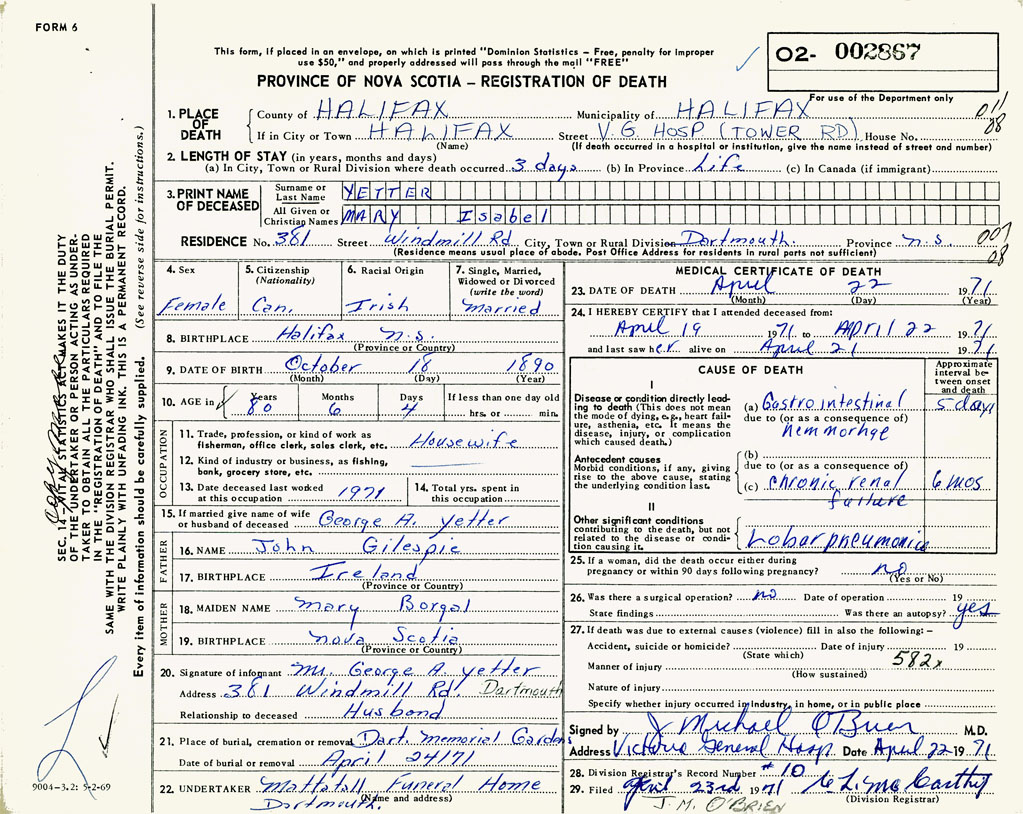 FORM 6
This form, if placed in an envelope, on which is printed "Dominion Statistics – Free, penalty for improper
use $50," and properly addressed will pass through the mail "FREE"
02- 002867
PROVINCE OF NOVA SCOTIA – REGISTRATION OF DEATH
For use of the Department only
1. PLACE OF DEATH County of HALIFAX Municipality of HALIFAX 011
If in City or Town HALIFAX Street V.G. HOSP (TOWER RD) House No. 08
(Name) (If death occurred in a hospital or institution, give the name instead of street and number)
2. LENGTH OF STAY (in years, months and days)
(a) In City, Town or Rural Division where death occurred 3 days (b) In Province Life (c) In Canada (if immigrant)
3. PRINT NAME OF DECEASED Surname or Last Name YETTER
All Given or Christian Names MARY Isabel
RESIDENCE No. 381 Street Windmill Rd City, Town or Rural Division Dartmouth Province N.S. 007
(Residence means usual place of abode. Post Office Address for residents in rural parts not sufficient) 08
4. Sex 5. Citizenship (Nationality) 6. Racial Origin 7. Single, Married, Widowed or Divorced (write the word)
Female Can. Irish Married
8. BIRTHPLACE Halifax N.S.
(Province or Country)
9. DATE OF BIRTH October 18 1890
(Month) (Day) (Year)
10. AGE in Years Months Days If less than one day old
80 6 4 hrs. or min.
OCCUPATION
11. Trade, profession, or kind of work as
fisherman, office clerk, sales clerk, etc. Housewife
12. Kind of industry or business, as fishing,
bank, grocery store, etc.
13. Date deceased last worked at this occupation 1971 14. Total yrs. spent in this occupation
15. If married give name of wife
or husband of deceased George A. Yetter
FATHER
16. NAME John Gilespie
17. BIRTHPLACE Ireland
(Province or Country)
MOTHER
18. MAIDEN NAME Mary Borgal
19. BIRTHPLACE Nova Scotia
(Province or Country)
20. Signature of informant Mr. George A. Yetter
Address 381 Windmill Rd. Dartmouth
Relationship to deceased Husband
21. Place of burial, cremation or removal Dart. Memorial Gardens
Date of burial or removal April 24/71
22. UNDERTAKER Mattatall Funeral Home
Dartmouth. (Name and address)
MEDICAL CERTIFICATE OF DEATH
23. DATE OF DEATH April 22 1971
(Month) (Day) (Year)
24. I HEREBY CERTIFY that I attended deceased from:
April 19 1971 to April 22 1971
and last saw her alive on April 21 1971
CAUSE OF DEATH
Approximate interval between onset and death
I
Disease or condition directly leading to death (This does not
mean the mode of dying, e.g., heart failure, asthenia, etc. It means the
disease, injury, or complication which caused death.)
(a) Gastrointestinal 5 days
due to (or as a consequence of)
hemmorhge
Antecedent causes
Morbid conditions, if any, giving
rise to the above cause, stating
the underlying condition last.
(b)
due to (or as a consequence of)
(c) chronic renal 6 mos
failure
II
Other significant conditions
contributing to the death, but not
related to the disease or condition causing it.
Lobar pneumonia
25. If a woman, did the death occur either during
pregnancy or within 90 days following pregnancy? no
(Yes or No)
26. Was there a surgical operation? no Date of operation 19
State findings Was there an autopsy? yes
27. If death was due to external causes (violence) fill in also the following: –
Accident, suicide or homicide? Date of injury 19
(State which) 582x
Manner of injury
(How sustained)
Nature of injury
Specify whether injury occurred in industry, in home, or in public place
Signed by J Michael O'Brien M.D.
Address Victoria General Hosp Date April 22 1971
28. Division Registrar's Record Number #10
29. Filed April 23rd 1971
(Division Registrar)
J.M. O'BRIEN
SEC. 14 – VITAL STATISTICS ACT MAKES IT THE DUTY
OF THE UNDERTAKER OR PERSON ACTING AS UNDERTAKER
TO OBTAIN ALL THE PARTICULARS REQUIRED
IN THE "REGISTRATION OF DEATH" AND TO FILE THE
SAME WITH THE DIVISION REGISTRAR WHO SHALL ISSUE THE BURIAL PERMIT.
WRITE PLAINLY WITH UNFADING INK. THIS IS A PERMANENT RECORD.
Every item of information should be carefully supplied. (See reverse side for instructions.)
9004-3.2: 5-2-69